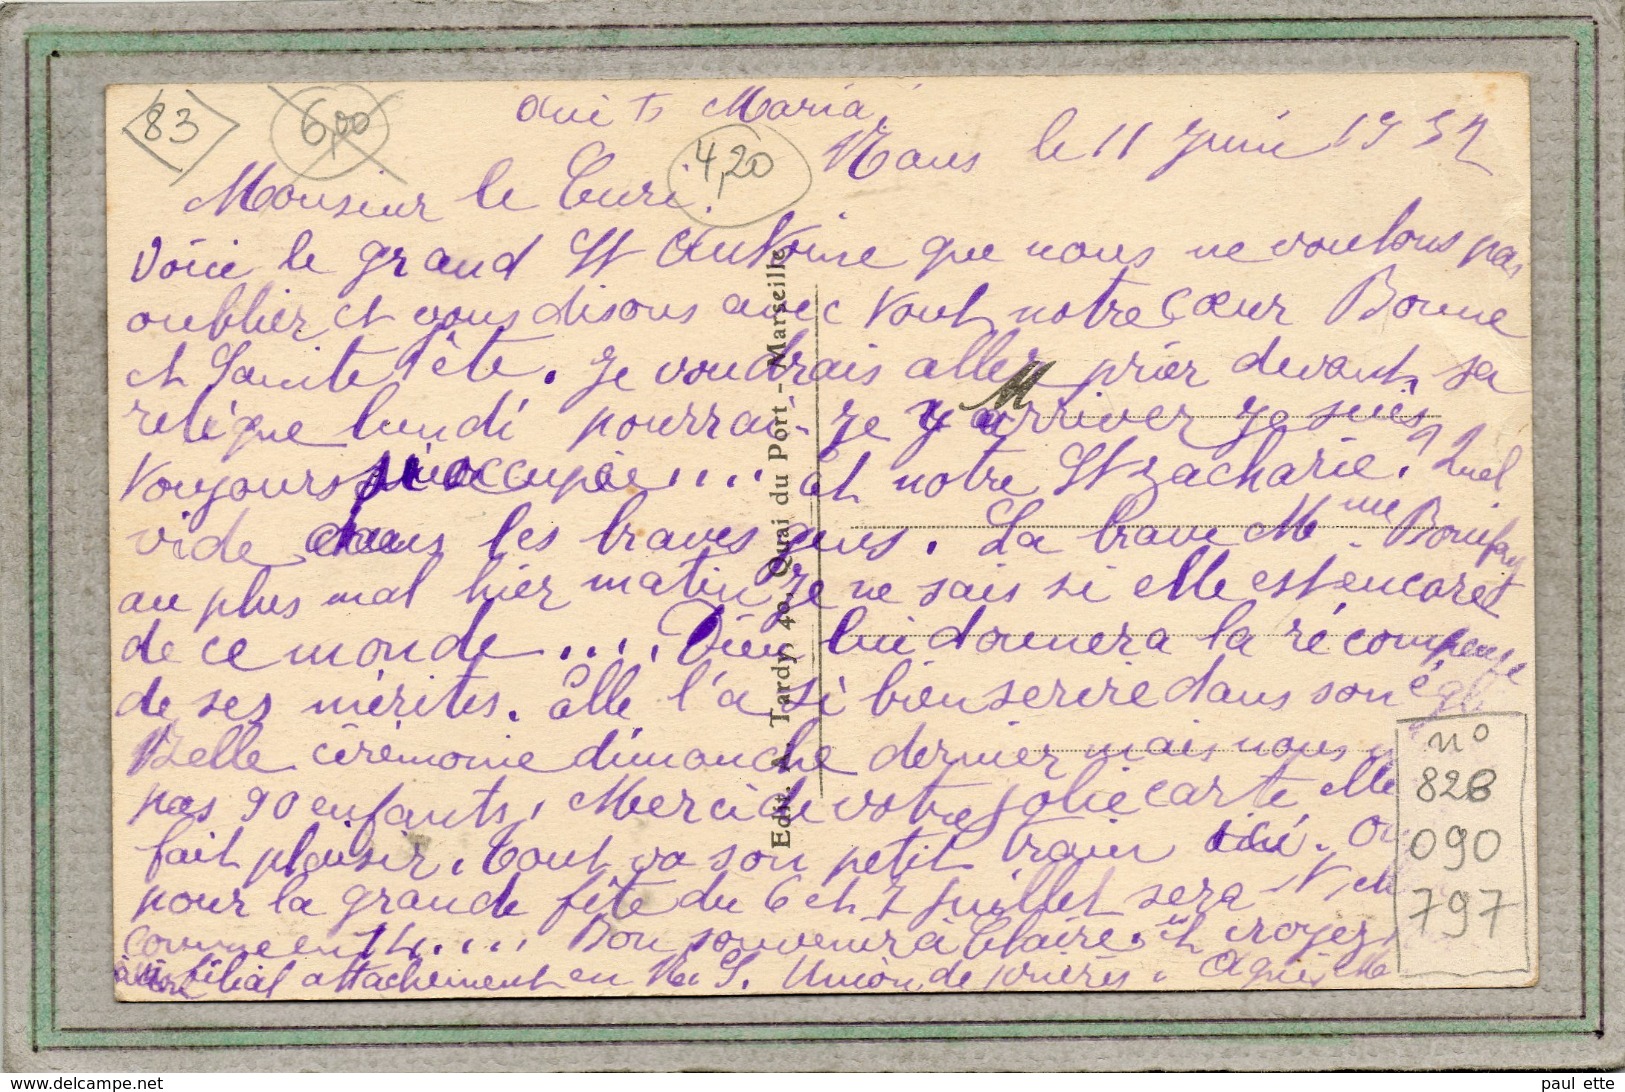 83
6,00
4,20
Maria
Nans le 11 Juin 19
Monsieur le Curé.
Voici le grand St Antoine que nous ne voulons pas
oublier et vous disons avec tout notre cœur Bonne
et Sainte Fête. Je voudrais aller prier devant sa
relique lundi pourrai-je y arriver je suis
toujours si occupée.... et notre St Zacharie? Quel
vide dans les braves gens. La brave Mme Bonifay
au plus mal hier matin, je ne sais si elle est encore
de ce monde..... Dieu lui donnera la récompense
de ses mérites. Elle l'a si bien servie dans son égl
Belle cérémonie dimanche dernier mais nous
pas 90 enfants, Merci de votre jolie carte elle
fait plaisir. Tout va son petit train ici. On
pour la grande fête du 6 et 7 Juillet sera
comme en 14.... Bon souvenir à Claire. et croyez
à notre filial attachement en Union de prières. Agnès
Edit. A. Tardy, 40, Quai du Port - Marseille
M
n°
828
090
797
delcampe.net
paul ette